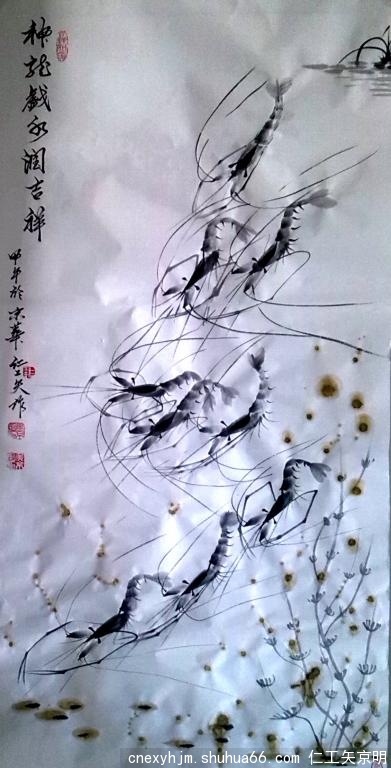 神龙戲水润吉祥
甲午於京華 仁工矢作
cnexyhjm.shuhua66.com 仁工矢京明